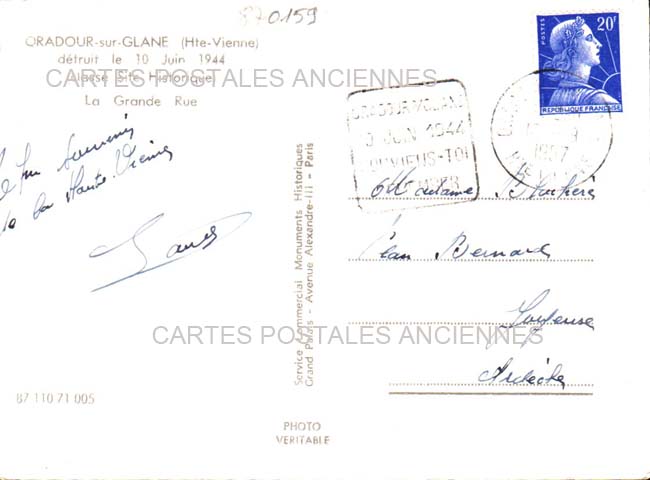 870159
ORADOUR-sur-GLANE (Hte-Vienne)
détruit le 10 Juin 1944
classé Site Historique
La Grande Rue
CARTES POSTALES ANCIENNES
POSTES
20F
REPUBLIQUE FRANÇAISE
ORADOUR S/GLANE
JUIN 1944
SOUVIENS-TOI
1957
souvenir
de la Haute-Vienne
Madame
Jean Bernard
Joyeuse
Ardèche
Service Commercial Monuments Historiques
Grand Palais - Avenue Alexandre-III - Paris
CARTES POSTALES ANCIENNES
87 110 71 005
PHOTO
VERITABLE